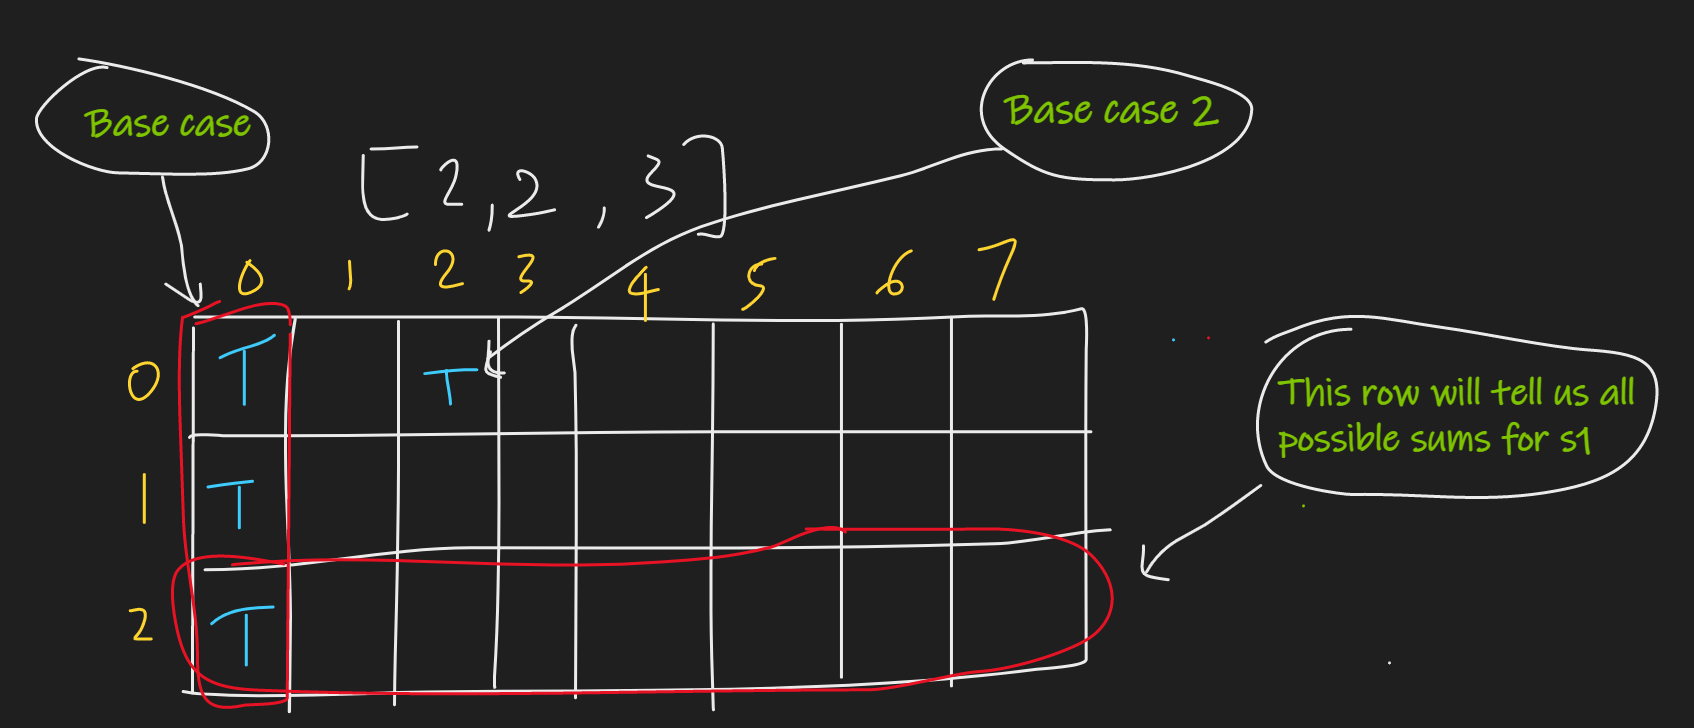 Base case
Base case 2
[2,2,3]
0 1 2 3 4 5 6 7
0 T T
1 T
2 T
This row will tell us all
possible sums for s1